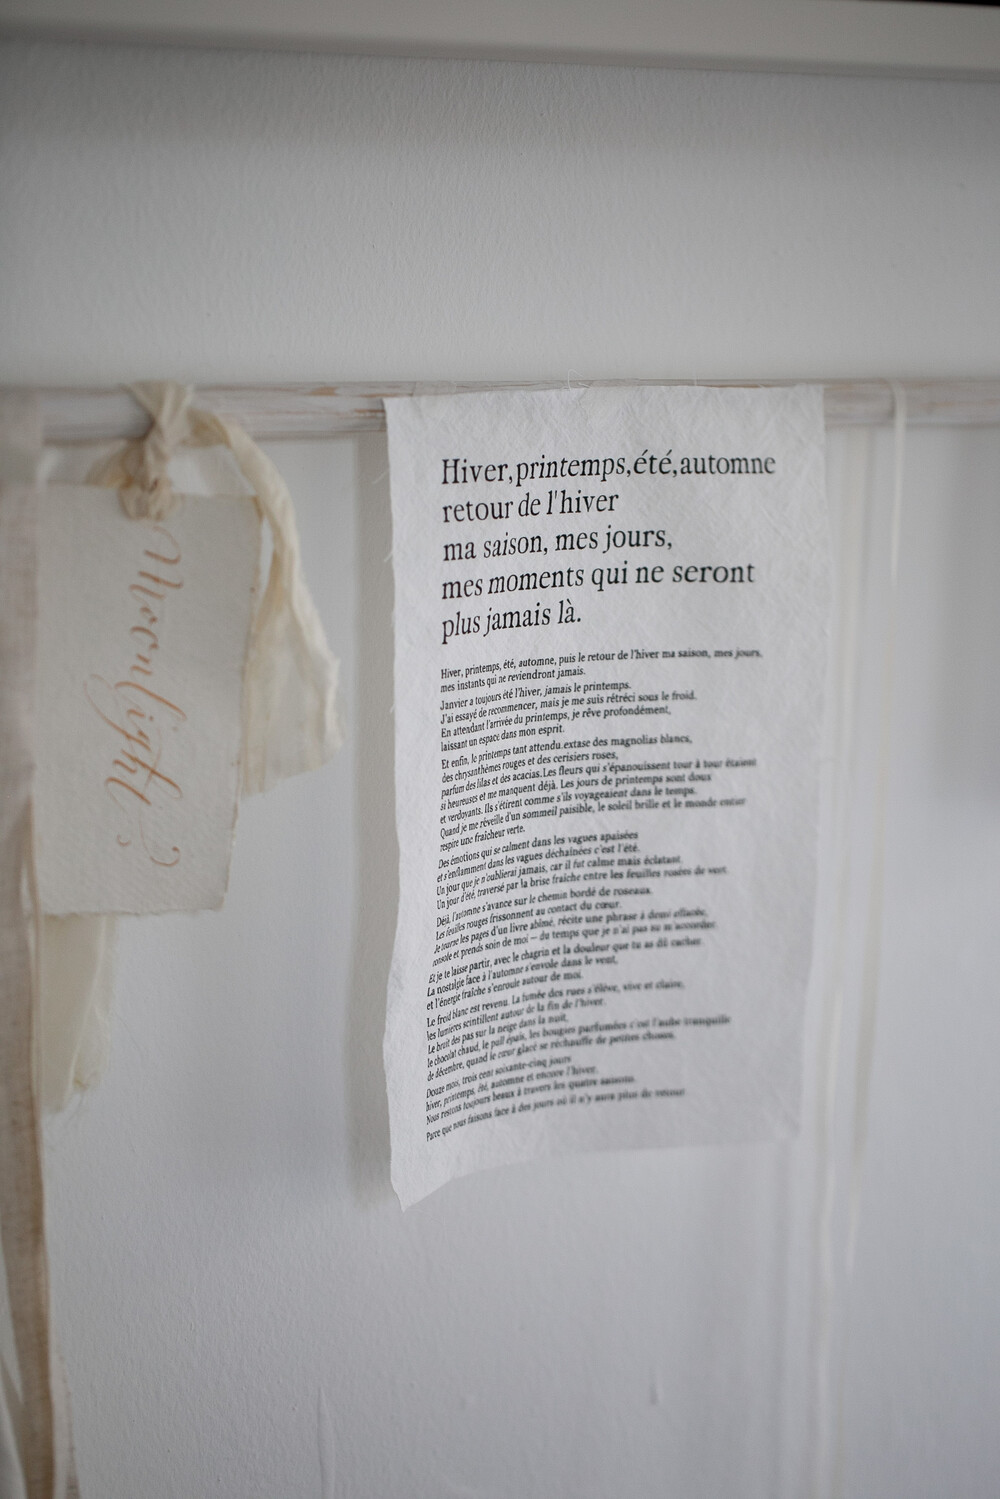 Moonlight
Hiver, printemps, été, automne
retour de l'hiver
ma saison, mes jours,
mes moments qui ne seront
plus jamais là.
Hiver, printemps, été, automne, puis le retour de l'hiver ma saison, mes jours,
mes instants qui ne reviendront jamais.
Janvier a toujours été l'hiver, jamais le printemps.
J'ai essayé de recommencer, mais je me suis rétréci sous le froid.
En attendant l'arrivée du printemps, je rêve profondément,
laissant un espace dans mon esprit.
Et enfin, le printemps tant attendu.extase des magnolias blancs,
des chrysanthèmes rouges et des cerisiers roses,
parfum des lilas et des acacias.Les fleurs qui s'épanouissent tour à tour étaient
si heureuses et me manquent déjà. Les jours de printemps sont doux
et verdoyants. Ils s'étirent comme s'ils voyageaient dans le temps.
Quand je me réveille d'un sommeil paisible, le soleil brille et le monde entier
respire une fraîcheur verte.
Des émotions qui se calment dans les vagues apaisées
et s'enflamment dans les vagues déchaînées c'est l'été.
Un jour que je n'oublierai jamais, car il fut calme mais éclatant.
Un jour d'été, traversé par la brise fraîche entre les feuilles rosées de vert.
Déjà, l'automne s'avance sur le chemin bordé de roseaux.
Les feuilles rouges frissonnent au contact du cœur.
Je tourne les pages d'un livre abîmé, récite une phrase à demi effacée,
console et prends soin de moi — du temps que je n'ai pas su m'accorder.
Et je te laisse partir, avec le chagrin et la douleur que tu as dû cacher
La nostalgie face à l'automne s'envole dans le vent,
et l'énergie fraîche s'enroule autour de moi.
Le froid blanc est revenu. La fumée des rues s'élève, vive et claire,
les lumières scintillent autour de la fin de l'hiver.
Le bruit des pas sur la neige dans la nuit,
le chocolat chaud, le pull épais, les bougies parfumées c'est l'aube tranquille
de décembre, quand le cœur glacé se réchauffe de petites choses.
Douze mois, trois cent soixante-cinq jours
hiver, printemps, été, automne et encore l'hiver.
Nous restons toujours beaux à travers les quatre saisons.
Parce que nous faisons face à des jours où il n'y aura plus de retour